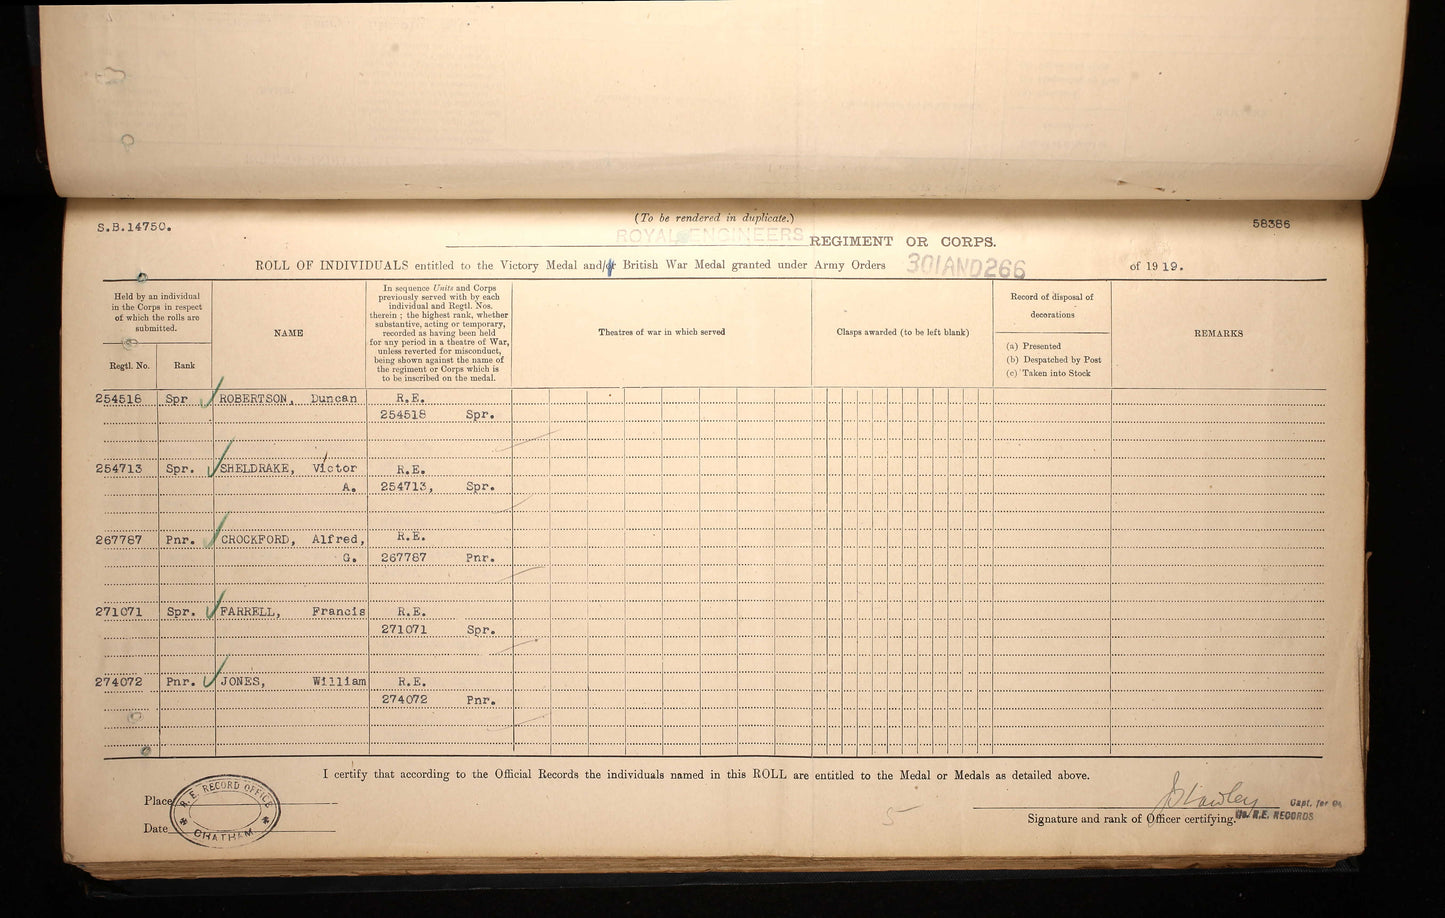 (To be rendered in duplicate.)
S.B.14750.
58386
ROYAL ENGINEERS REGIMENT OR CORPS.
ROLL OF INDIVIDUALS entitled to the Victory Medal and/or British War Medal granted under Army Orders 301AND266 of 1919.
Held by an individual
in the Corps in respect
of which the rolls are
submitted.
Regtl. No.
Rank
NAME
In sequence Units and Corps
previously served with by each
individual and Regtl. Nos.
therein ; the highest rank, whether
substantive, acting or temporary,
recorded as having been held
for any period in a theatre of War,
unless reverted for misconduct,
being shown against the name of
the regiment or Corps which is
to be inscribed on the medal.
Theatres of war in which served
Clasps awarded (to be left blank)
Record of disposal of
decorations
(a) Presented
(b) Despatched by Post
(c) Taken into Stock
REMARKS
254518 Spr ROBERTSON, Duncan R.E.
254518 Spr.
254713 Spr. SHELDRAKE, Victor R.E.
A. 254713, Spr.
267787 Pnr. CROCKFORD, Alfred, R.E.
G. 267787 Pnr.
271071 Spr. FARRELL, Francis R.E.
271071 Spr.
274072 Pnr. JONES, William R.E.
274072 Pnr.
I certify that according to the Official Records the individuals named in this ROLL are entitled to the Medal or Medals as detailed above.
Place
R. E. RECORD OFFICE
CHATHAM
Date
5
Capt. for
Signature and rank of Officer certifying.
R.E. RECORDS